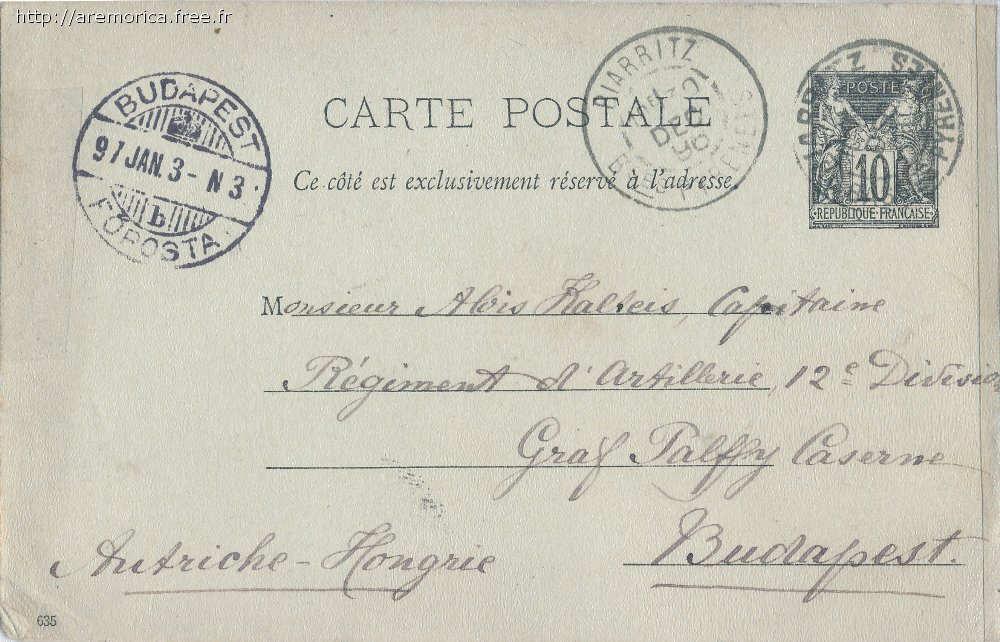 http://aremorica.free.fr
BUDAPEST
97 JAN. 3 - N 3
b
FŐPOSTA
CARTE POSTALE
Ce côté est exclusivement réservé à l'adresse.
BIARRITZ
DEC
BSES PYRENEES
BIARRITZ
PYRENEES
POSTE
10
REPUBLIQUE FRANÇAISE
Monsieur Alois Kalteis, Capitaine
Régiment d'Artillerie, 12e Divisio
Graf Palffy Caserne
Budapest.
Autriche-Hongrie
635